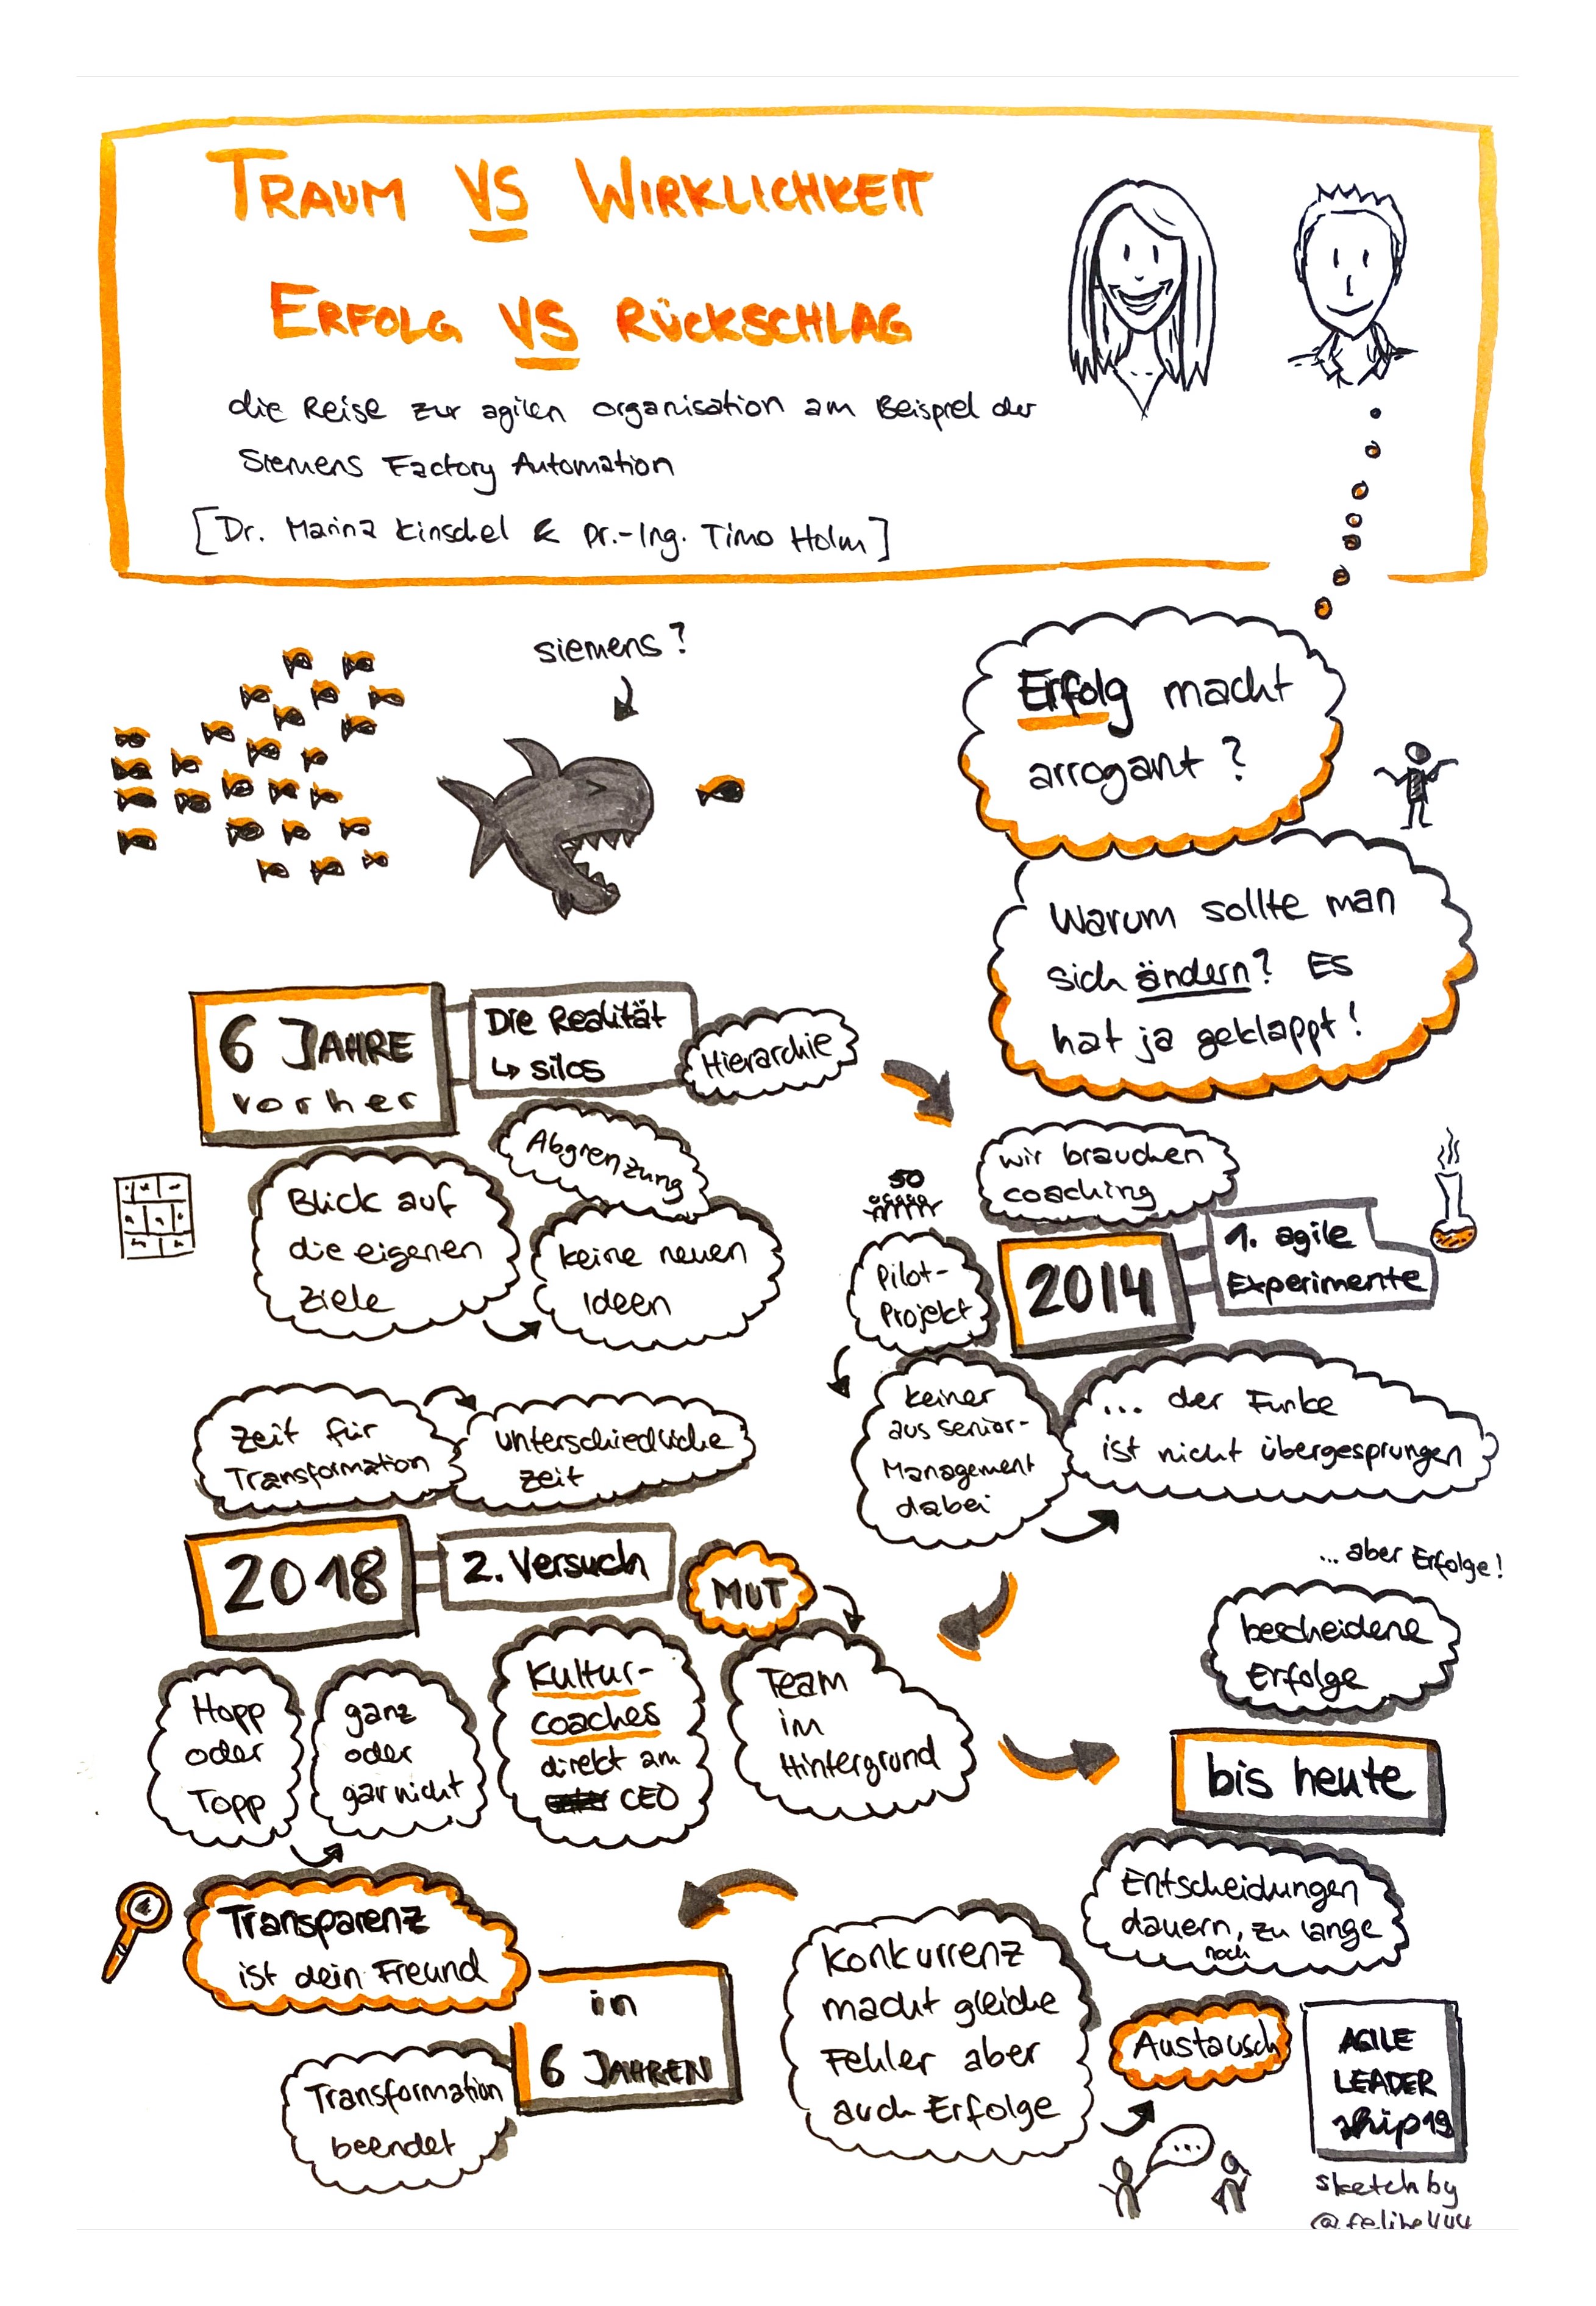 TRAUM VS WIRKLICHKEIT
ERFOLG VS RÜCKSCHLAG
die Reise zur agilen organisation am Beispiel der
Siemens Factory Automation
[Dr. Marina Kinschel & Dr.-Ing. Timo Holm]
siemens?
Erfolg macht
arrogant?
Warum sollte man
sich ändern? Es
hat ja geklappt!
6 JAHRE
vorher
Die Realität
↳ silos
Hierarchie
Abgrenzung
Blick auf
die eigenen
Ziele
keine neuen
Ideen
wir brauchen
coaching
50
Pilot-
Projekt
2014
1. agile
Experimente
keiner
aus senior-
Management
dabei
... der Funke
ist nicht übergesprungen
Zeit für
Transformation
unterschiedliche
Zeit
2018
2. Versuch
MUT
Hopp
oder
Topp
ganz
oder
gar nicht
Kultur-
coaches
direkt am
CEO
Team
im
Hintergrund
... aber Erfolge!
bescheidene
Erfolge
bis heute
Entscheidungen
dauern, zu lange
noch
Transparenz
ist dein Freund
in
6 JAHREN
Transformation
beendet
Konkurrenz
macht gleiche
Fehler aber
auch Erfolge
Austausch
...
AGILE
LEADER
ship19
sketch by